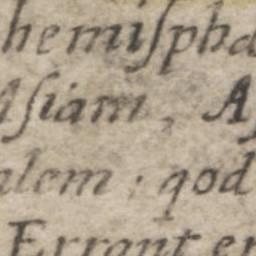 hemiſphæ
Aſiam, Aſ
alem: qod
Errant er